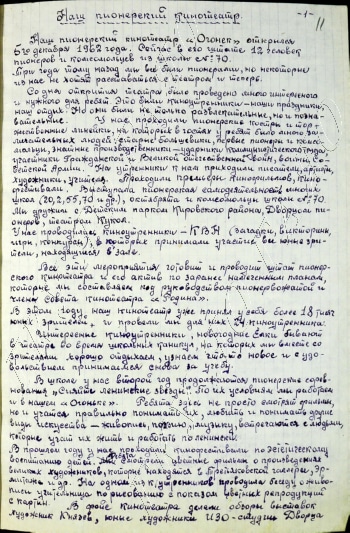 - 1 -
11
Наш пионерский кинотеатр.
Наш пионерский кинотеатр "Огонек" открылся
6го декабря 1962 года. Сейчас в его штате 12 человек
пионеров и комсомольцев из школы № 70.
Три года тому назад мы все были пионерами, но некоторые
из нас не хотят расставаться с театром и теперь.
Со дня открытия театра было проведено много интересного
и нужного для ребят. Это были киноутренники - наши праздники,
наш отдых. Но они были не только развлекательные, но и позна-
вательные. У нас проходили пионерские костры и тор-
жественные линейки, на которых в гостях у ребят было много за-
мечательных людей: старые большевики, первые пионеры и комсо-
мольцы, знатные производственники - ударники Коммунистического труда,
участники Гражданской и Великой Отечественной войн, воины Со-
ветской Армии. На утренники к нам приходили писатели, артисты,
художники, учителя. Проходили премьеры кинофильмов, Кино-
фестивали. Выступала пионерская самодеятельность многих
школ (20, 2, 55, 70 и др.), октябрята и комсомольцы школы № 70.
Мы дружим с Детским парком Кировского района, Дворцом пи-
онеров, театром Кукол.
У нас проводились киноутренники - КВН (загадки, викторины,
игры, конкурсы), в которых принимали участие все юные зри-
тели, находящиеся в зале.
Все эти мероприятия готовит и проводит штат пионер-
ского кинотеатра и его актив по заранее намеченным планам,
которые мы составляем под руководством пионервожатой и
члена Совета кинотеатра "Родина".
В этом году наш кинотеатр уже принял у себя более 18 тысяч
юных зрителей, и провели мы для них 24 киноутренника.
Интересные киноутренники, новогодние ёлки бывают
в театре во время школьных каникул, на которых мы вместе со
зрителями хорошо отдыхаем, узнаем что-то новое и с удо-
вольствием принимаемся снова за учебу.
В школе у нас второй год продолжаются пионерские сорев-
нования "Сияйте ленинские звезды". По их условиям мы работаем
и в нашем "Огоньке". Ребята здесь не просто смотрят фильмы,
но и учатся правильно понимать их, любить и понимать другие
виды искусства - живопись, поэзию, музыку, встречаются с людьми,
которые учат их жить и работать по-ленински.
В прошлом году у нас проходил кинофестиваль по эстетическому
воспитанию детей. Мы смотрели цветные фильмы о произведениях
великих художников, которые находятся в Третьяковской галерее, Эр-
митаже и др. На одном из утренников проводила беседу о живо-
писи учительница по рисованию с показом цветных репродукций
с картин. В фойе кинотеатра делали обзоры выставок
художник Князев, юные художники ИЗО-студии Дворца